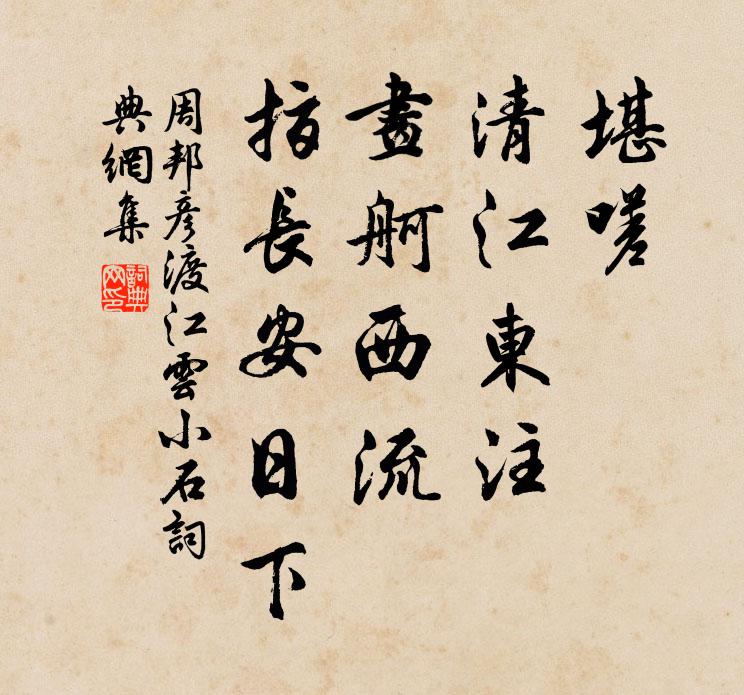 堪嗟
清江東注
畫舸西流
指長安日下
周邦彥渡江雲小石詞
典網集
詞典
网印